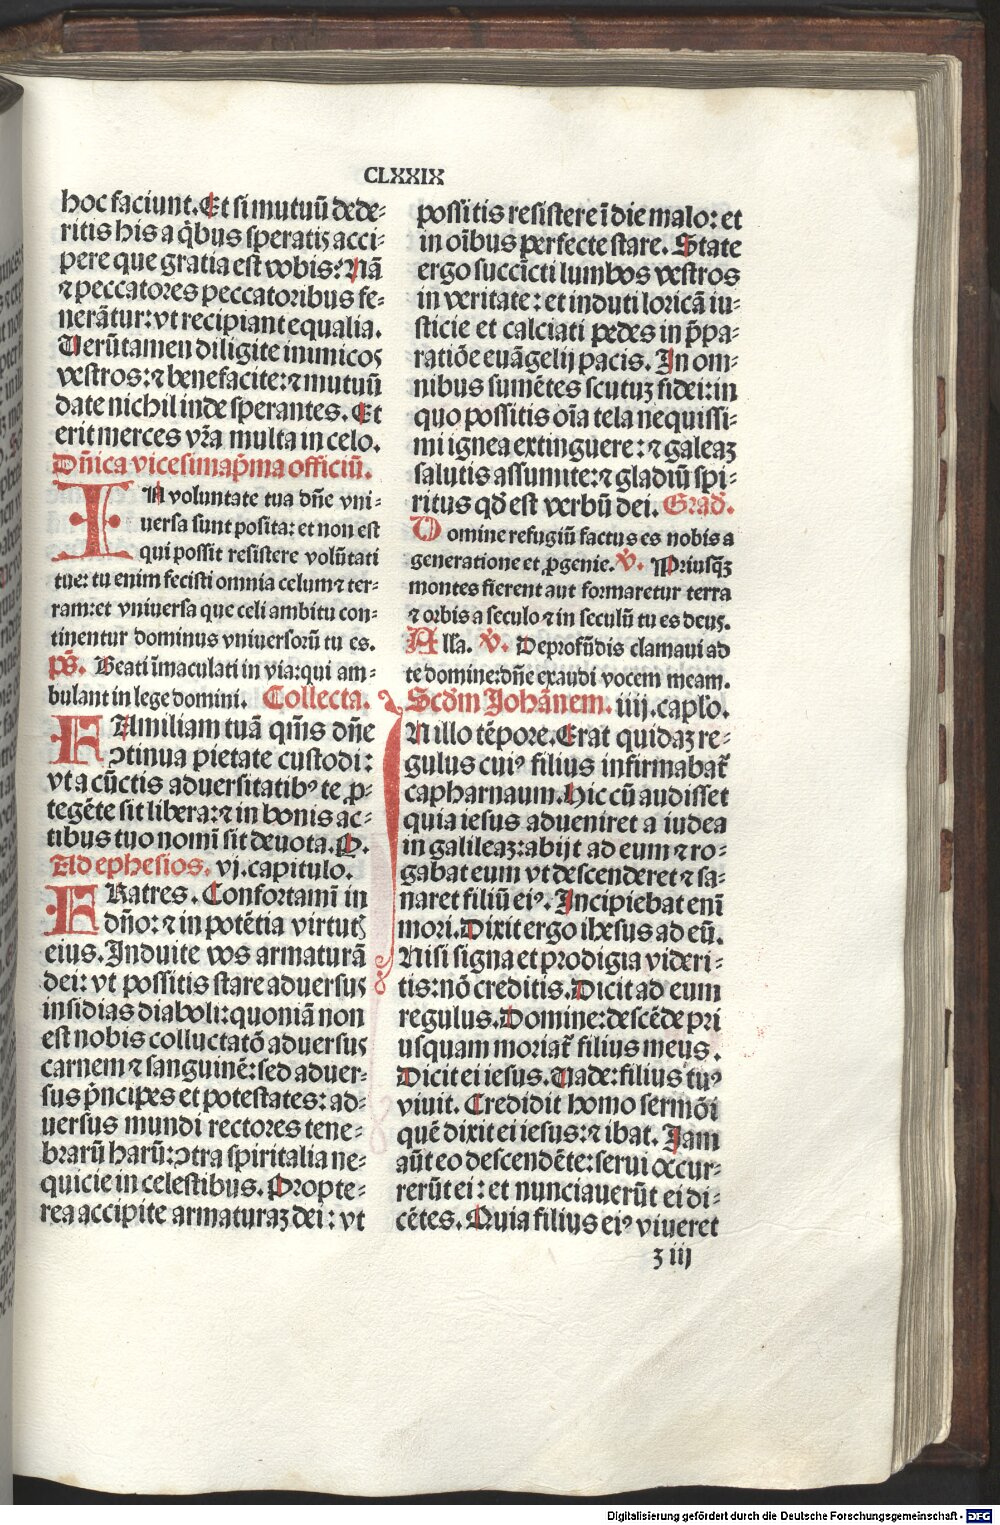 CLXXIX
hoc faciunt. Et si mutuū dede⸗
ritis his a q̇bus speratis acci⸗
pere que gratia est vobis? Nā
⁊ peccatores peccatoribus fe⸗
nerātur: vt recipiant equalia.
Uerūtamen diligite inimicos
vestros: ⁊ benefacite: ⁊ mutuū
date nichil inde sperantes. Et
erit merces vr̄a multa in celo.
Dn̄ica vicesimap̄ma officiū.
IN voluntate tua dn̄e vni⸗
uersa sunt posita: et non est
qui possit resistere volūtati
tue: tu enim fecisti omnia celum ⁊ ter⸗
ram: et vniuersa que celi ambitu con⸗
tinentur dominus vniuersorū tu es.
ps̄. Beati īmaculati in via: qui am⸗
bulant in lege domini. Collecta.
FAmiliam tuā qm̄s dn̄e
ↄtinua pietate custodi:
vt a cūctis aduersitatibꝰ te ꝓ⸗
tegēte sit libera: ⁊ in bonis ac⸗
tibus tuo nomī sit deuota. P.
Ad ephesios. vj. capitulo.
FRatres. Confortamī in
dn̄o: ⁊ in potētia virtutꝭ
eius. Induite vos armaturā
dei: vt possitis stare aduersus
insidias diaboli: quoniā non
est nobis colluctatō aduersus
carnem ⁊ sanguinē: sed aduer⸗
sus p̄ncipes et potestates: ad⸗
uersus mundi rectores tene⸗
brarū harū: ↄtra spiritalia ne⸗
quicie in celestibus. Propte⸗
rea accipite armaturaꝫ dei: vt
possitis resistere ī die malo: et
in oībus perfecte stare. State
ergo succīcti lumbos vestros
in veritate: et induti loricā iu⸗
sticie et calciati pedes in p̄pa⸗
ratiōe euāgelij pacis. In om⸗
nibus sumētes scutuꝫ fidei: in
quo possitis oīa tela nequissi⸗
mi ignea extinguere: ⁊ galeaꝫ
salutis assumite: ⁊ gladiū spi⸗
ritus qd̄ est verbū dei. Grad̄.
Domine refugiū factus es nobis a
generatione et ꝓgenie. v̄. Priusqꝫ̄
montes fierent aut formaretur terra
⁊ orbis a seculo ⁊ in seculū tu es deus.
All̄a. v̄. De profūdis clamaui ad
te domine: dn̄e exaudi vocem meam.
Scd̄m Johānem. iiij. capl̄o.
IN illo tēpore. Erat quidaꝫ re⸗
gulus cuiꝰ filius infirmabat᷑
capharnaum. Hic cū audisset
quia iesus adueniret a iudea
in galileaꝫ: abijt ad eum ⁊ ro⸗
gabat eum vt descenderet ⁊ sa⸗
naret filiū eiꝰ. Incipiebat enī
mori. Dixit ergo ihesus ad eū.
Nisi signa et prodigia videri⸗
tis: nō creditis. Dicit ad eum
regulus. Domine: descēde pri
usquam moriat᷑ filius meus.
Dicit ei iesus. Vade: filius tuꝰ
viuit. Credidit homo sermōi
quē dixit ei iesus: ⁊ ibat. Jam
aūt eo descendēte: serui occur⸗
rerūt ei: et nunciauerūt ei di⸗
cētes. Quia filius eiꝰ viueret
z iij
Digitalisierung gefördert durch die Deutsche Forschungsgemeinschaft - DFG